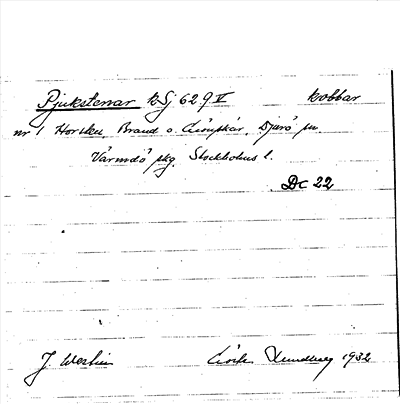 Pjukstenar kSj 629 V kobbar
nr 1 Horsten, Brand o. Djurö sn
Värmdö skg. Stockholms l.
Dc 22
J Westin Lundberg 1932